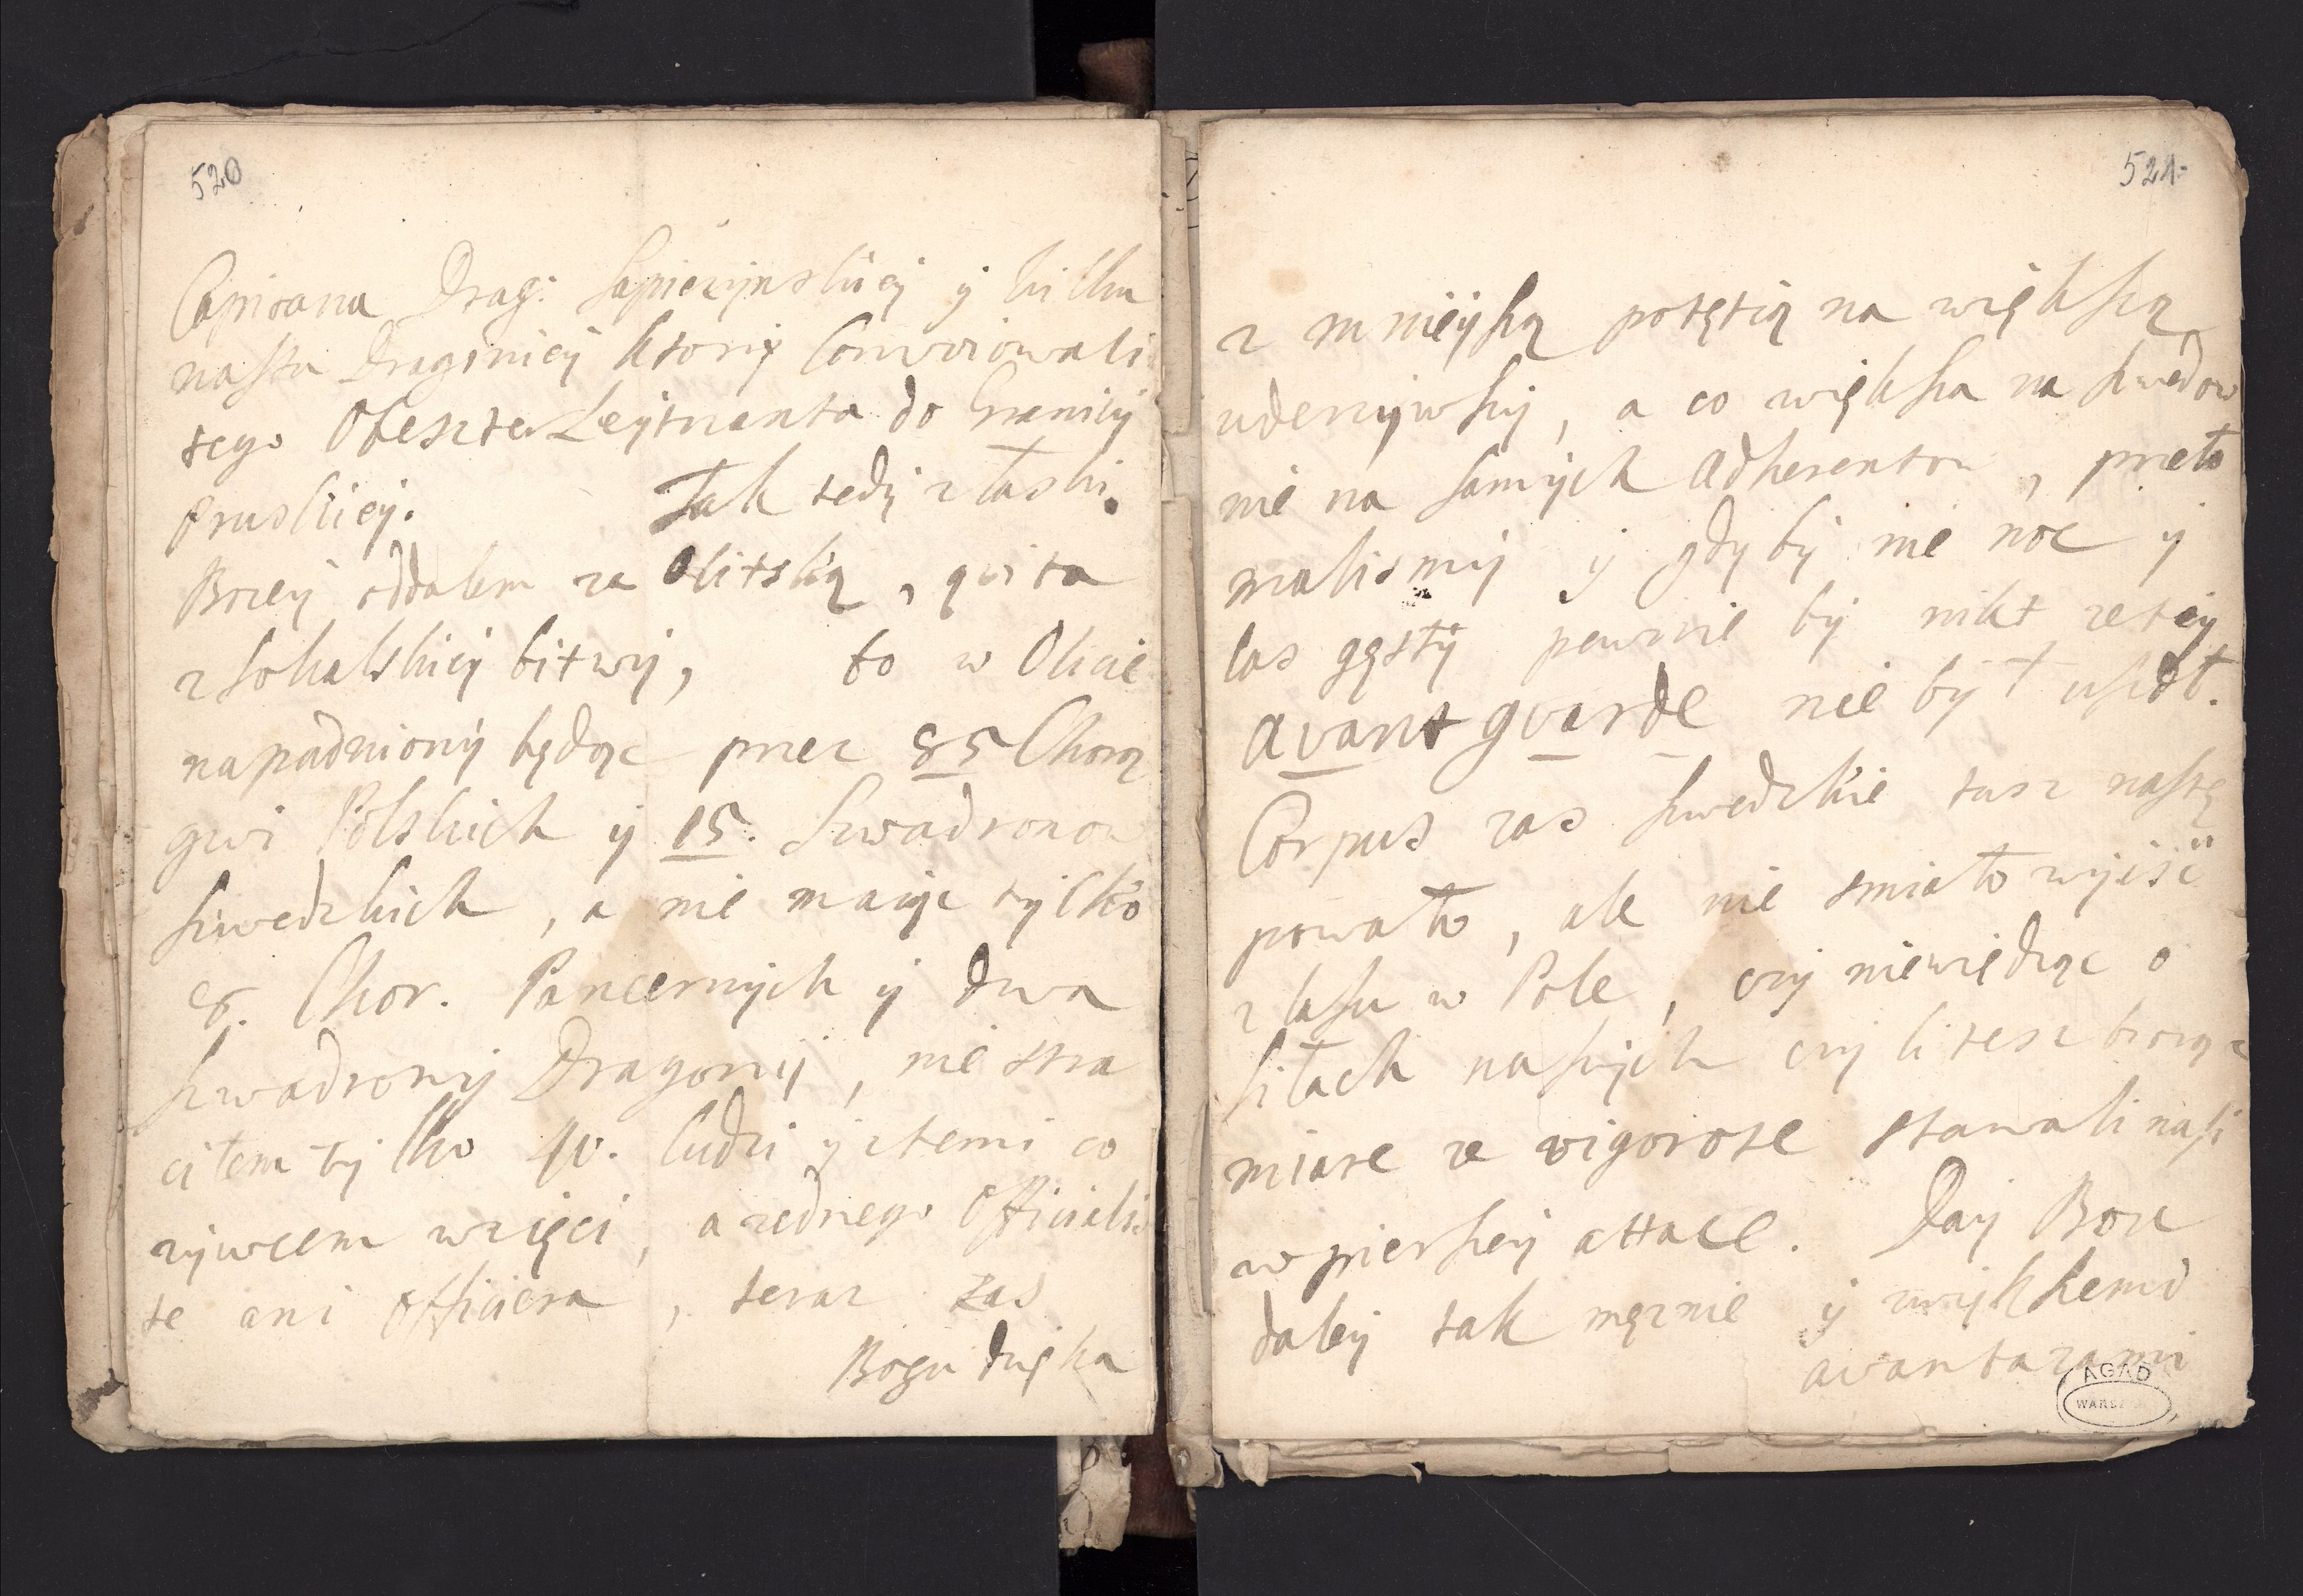 520
Capitana Drag: Sapieżynskiey y kilku
nastu Dragoniey ktorzy Convoiowali
tego Obeszter Leytnanta do Granicy
Pruskiey. Tak tedy z łaski
Bozey oddałem za Olitską, qvita
z Sokalskiey bitwy, bo w Olicie
napadniony będąc przez 85 Chorą
gwi Polskich y 15. Szwadronow
szwedzkich, a nie maiąc tylko
8. Chor. Pancernych y dwa
szwadrony Dragonij, nie stra
ciłem tylko 40. ludzi y ztemi co
zywcem wzięci, a zednego Officialis
te ani Officiera, teraz zas
Bogu dzięka
521.
z mnieyszą potętią na większą
uderzywszy, a co większa na szwedow
nie na samych Adherentow, przeła
malismy y gdyby nie noc y
las gęsty pewnie by nikt ztey
avantgvarde nie był uszedł.
Corpus zas szwedzkie tusz nastę
powało, ale nie smiało wyiść
z lasu w Pole, czy niewiedząc o
siłach naszych czyli tesz biorąc
miare ze vigorose stawali nasi
w pierszey attace. Day Boze
daley tak męznie y zwiększemi
avantazami
AGAD
WARSZAWA